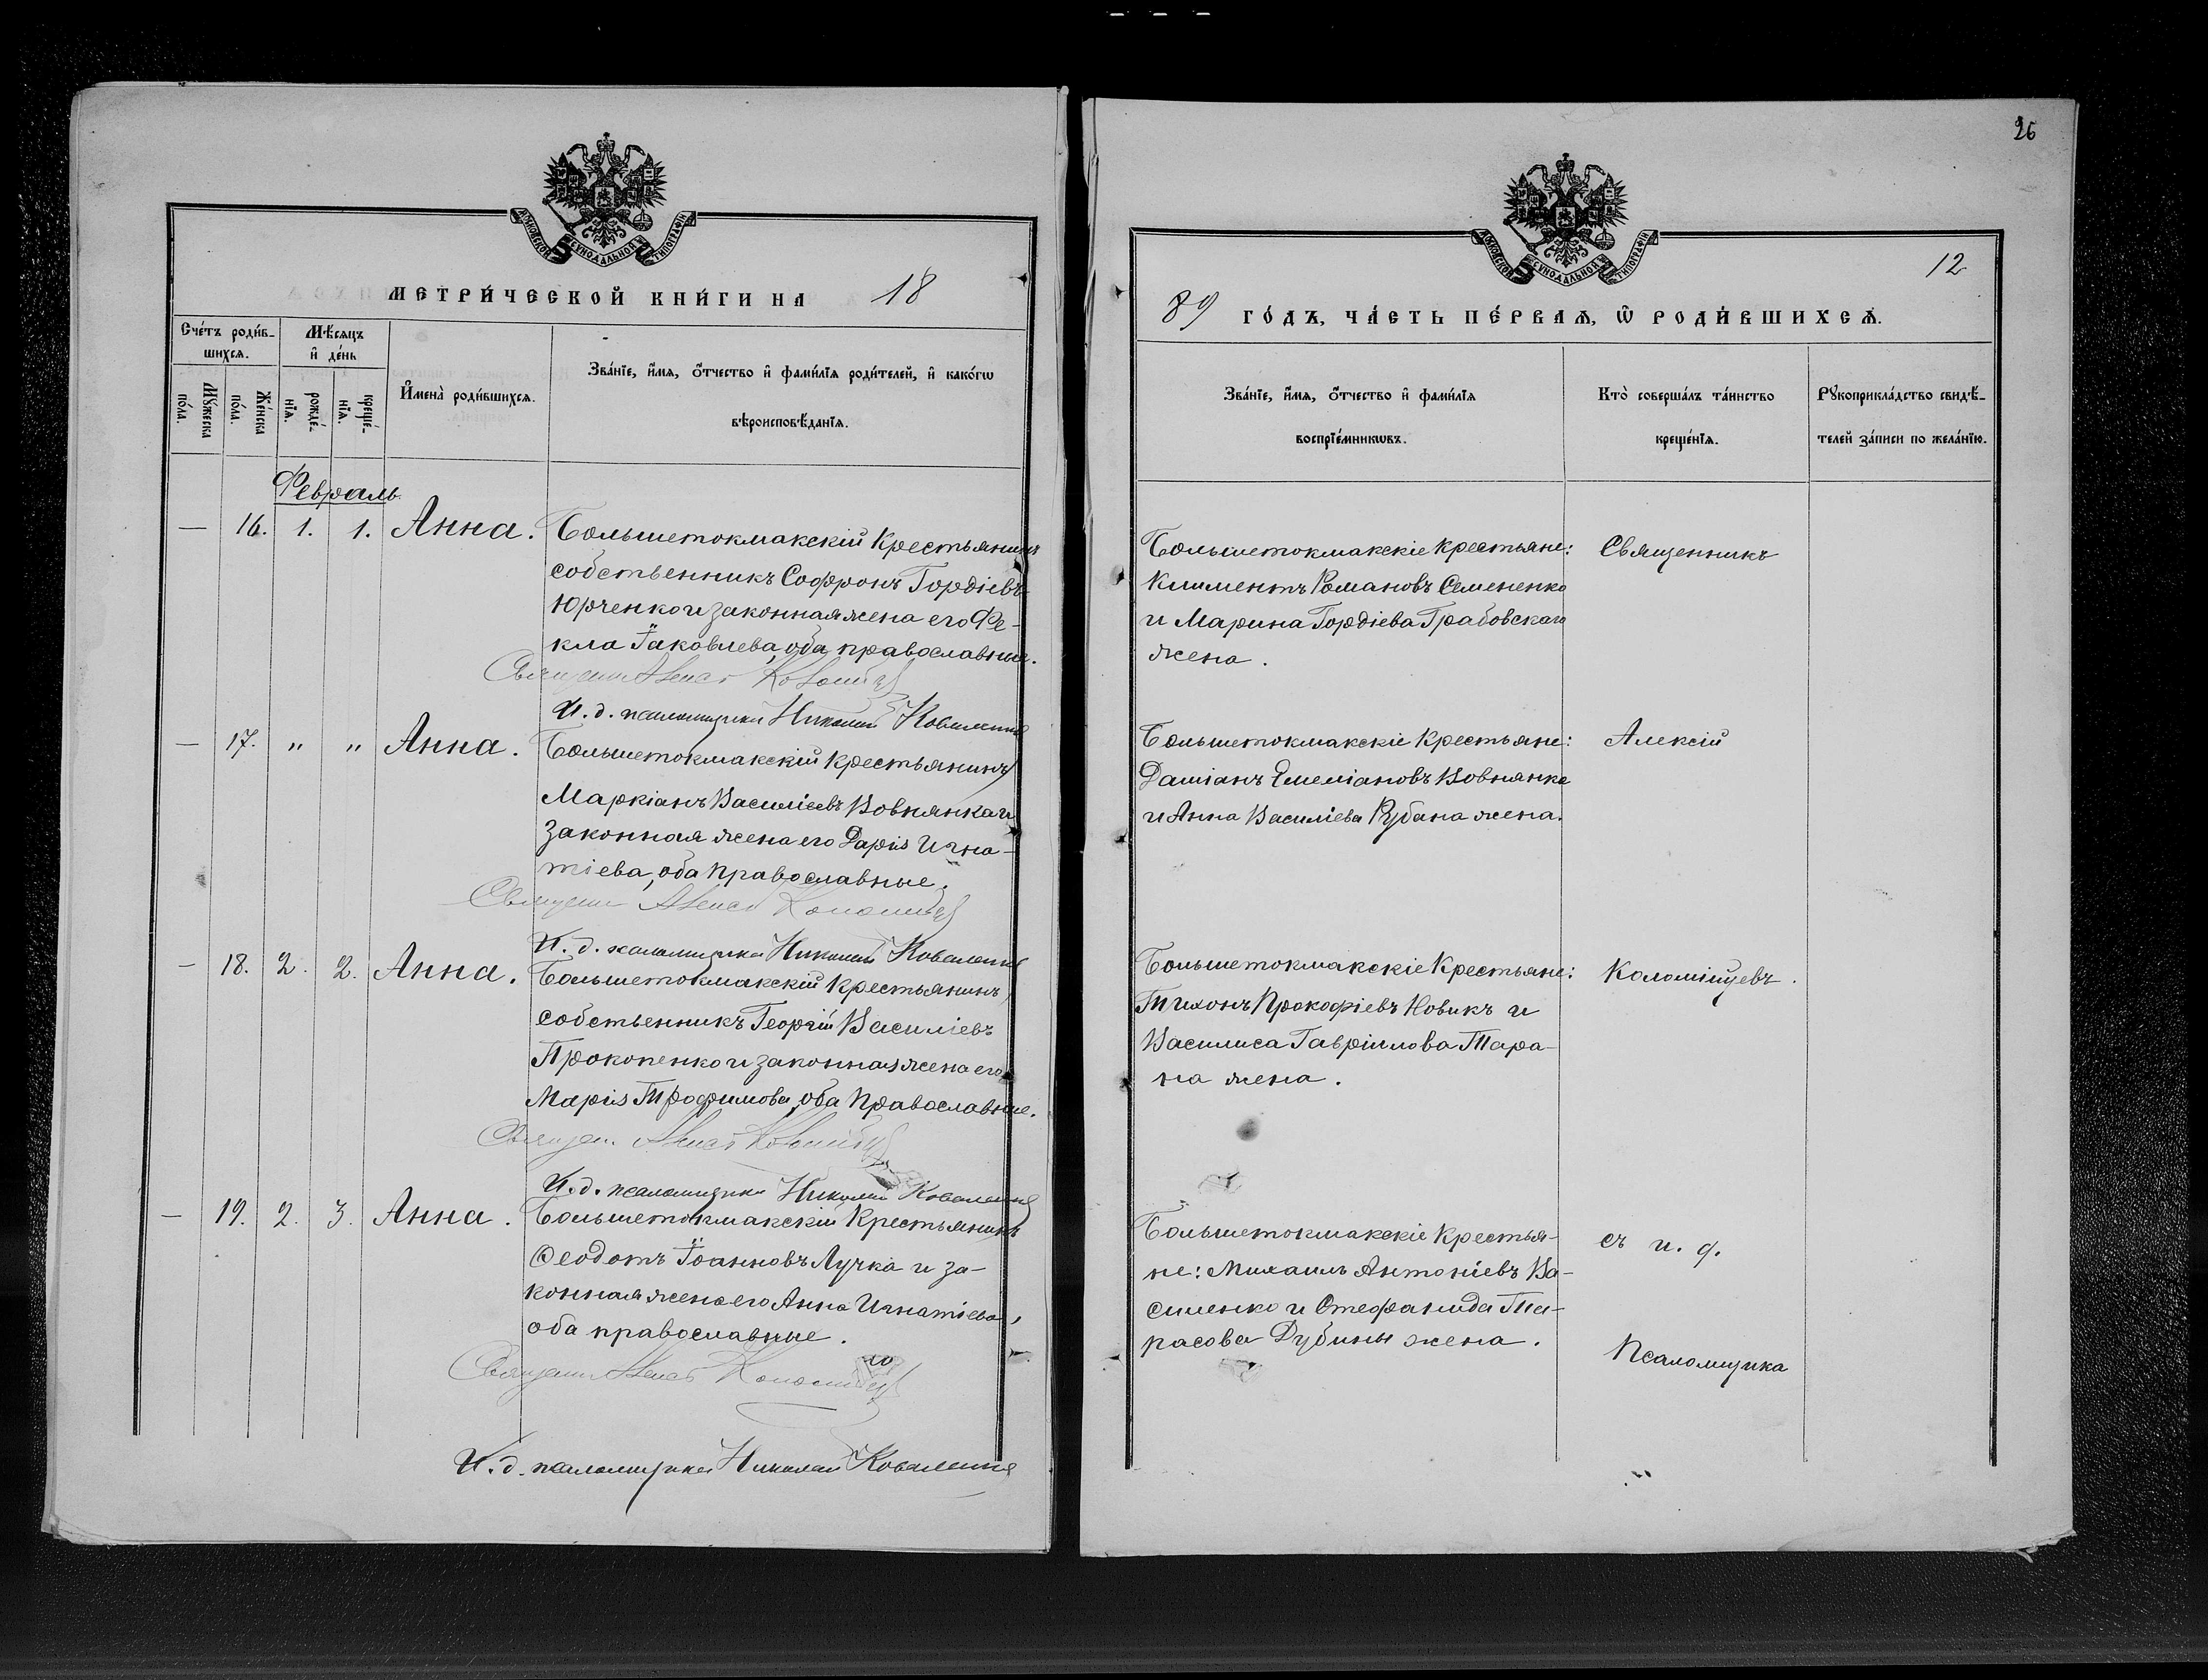 26
МОСКОВСКОЙ СУНОДАЛЬНОЙ ТИПОГРАФІИ
МЕТРИ́ЧЕСКОЙ КНИ́ГИ НА 18
Сче́тъ роди́в-
шихся.
Мѣ́сяцъ
и҆ де́нь
Мꙋ́жеска по́ла.
Же́нска по́ла.
рожде́-
нїя.
креще́-
нїя.
И҆мена̀ роди́вшихся.
Зва́нїе, и҆́мя, о҆́тчество и҆ фами́лїя роди́телей, и҆ како́гѡ
вѣроисповѣ́данїя.
Февраль
— 16. 1. 1. Анна.
Большетокмакскій Крестьянинъ
собственникъ Софронъ Гордіевъ
Юрченко и законная жена его Фе-
кла Іаковлева, оба православные.
Священ Алексѣ Коломійц
И. д. псаломщика Николай Коваленко
— 17. " " Анна.
Большетокмакскій крестьянинъ
Маркіанъ Василіевъ Вовнянка и
законная жена его Дарія Игна-
тіева, оба православные.
Священ Алексѣ Коломійц
И. д. псаломщика Николай Коваленко
— 18. 2. 2. Анна.
Большетокмакскій крестьянинъ
собственникъ Георгій Василіевъ
Прокопенко и законная жена его
Марія Трофимова, оба православные.
Священ. Алексѣ Коломійц
И. д. псаломщика Николай Коваленко
— 19. 2. 3. Анна.
Большетокмакскій Крестьянинъ
Ѳеодотъ Іоанновъ Лучка и за-
конная жена его Анна Игнатіева,
оба православные.
Священ Алексѣ Коломійц
И. д. псаломщика Николай Коваленко
МОСКОВСКОЙ СУНОДАЛЬНОЙ ТИПОГРАФІИ
12
89 ГО́ДЪ, ЧА́СТЬ ПЕ́РВАѦ, Ѿ РОДИ́ВШИХСѦ.
Зва́нїе, и҆́мя, о҆́тчество и҆ фами́лїя
воспрїе́мникѡвъ.
Кто̀ соверша́лъ та́инство
креще́нїя.
Рꙋкоприкла́дство свидѣ́-
телей за́писи по жела́нїю.
Большетокмакскіе крестьяне:
Климентъ Романовъ Семененко
и Марина Гордіева Грабовскаго
жена.
Священникъ
Большетокмакскіе крестьяне:
Даміанъ Емеліановъ Вовнянка
и Анна Василіева Рубана жена.
Алексій
Большетокмакскіе Крестьяне:
Тихонъ Прокофіевъ Новикъ и
Василиса Гавріилова Тара-
на жена.
Коломійцевъ.
Большетокмакскіе крестья-
не: Михаилъ Антоніевъ Ва-
силенко и Стефанида Та-
расова Дубины жена.
съ и. д.
Псаломщика